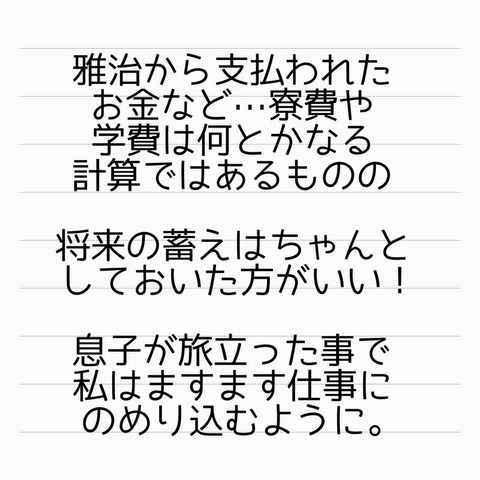 雅治から支払われた
お金など…寮費や
学費は何とかなる
計算ではあるものの
将来の蓄えはちゃんと
しておいた方がいい！
息子が旅立った事で
私はますます仕事に
のめり込むように。